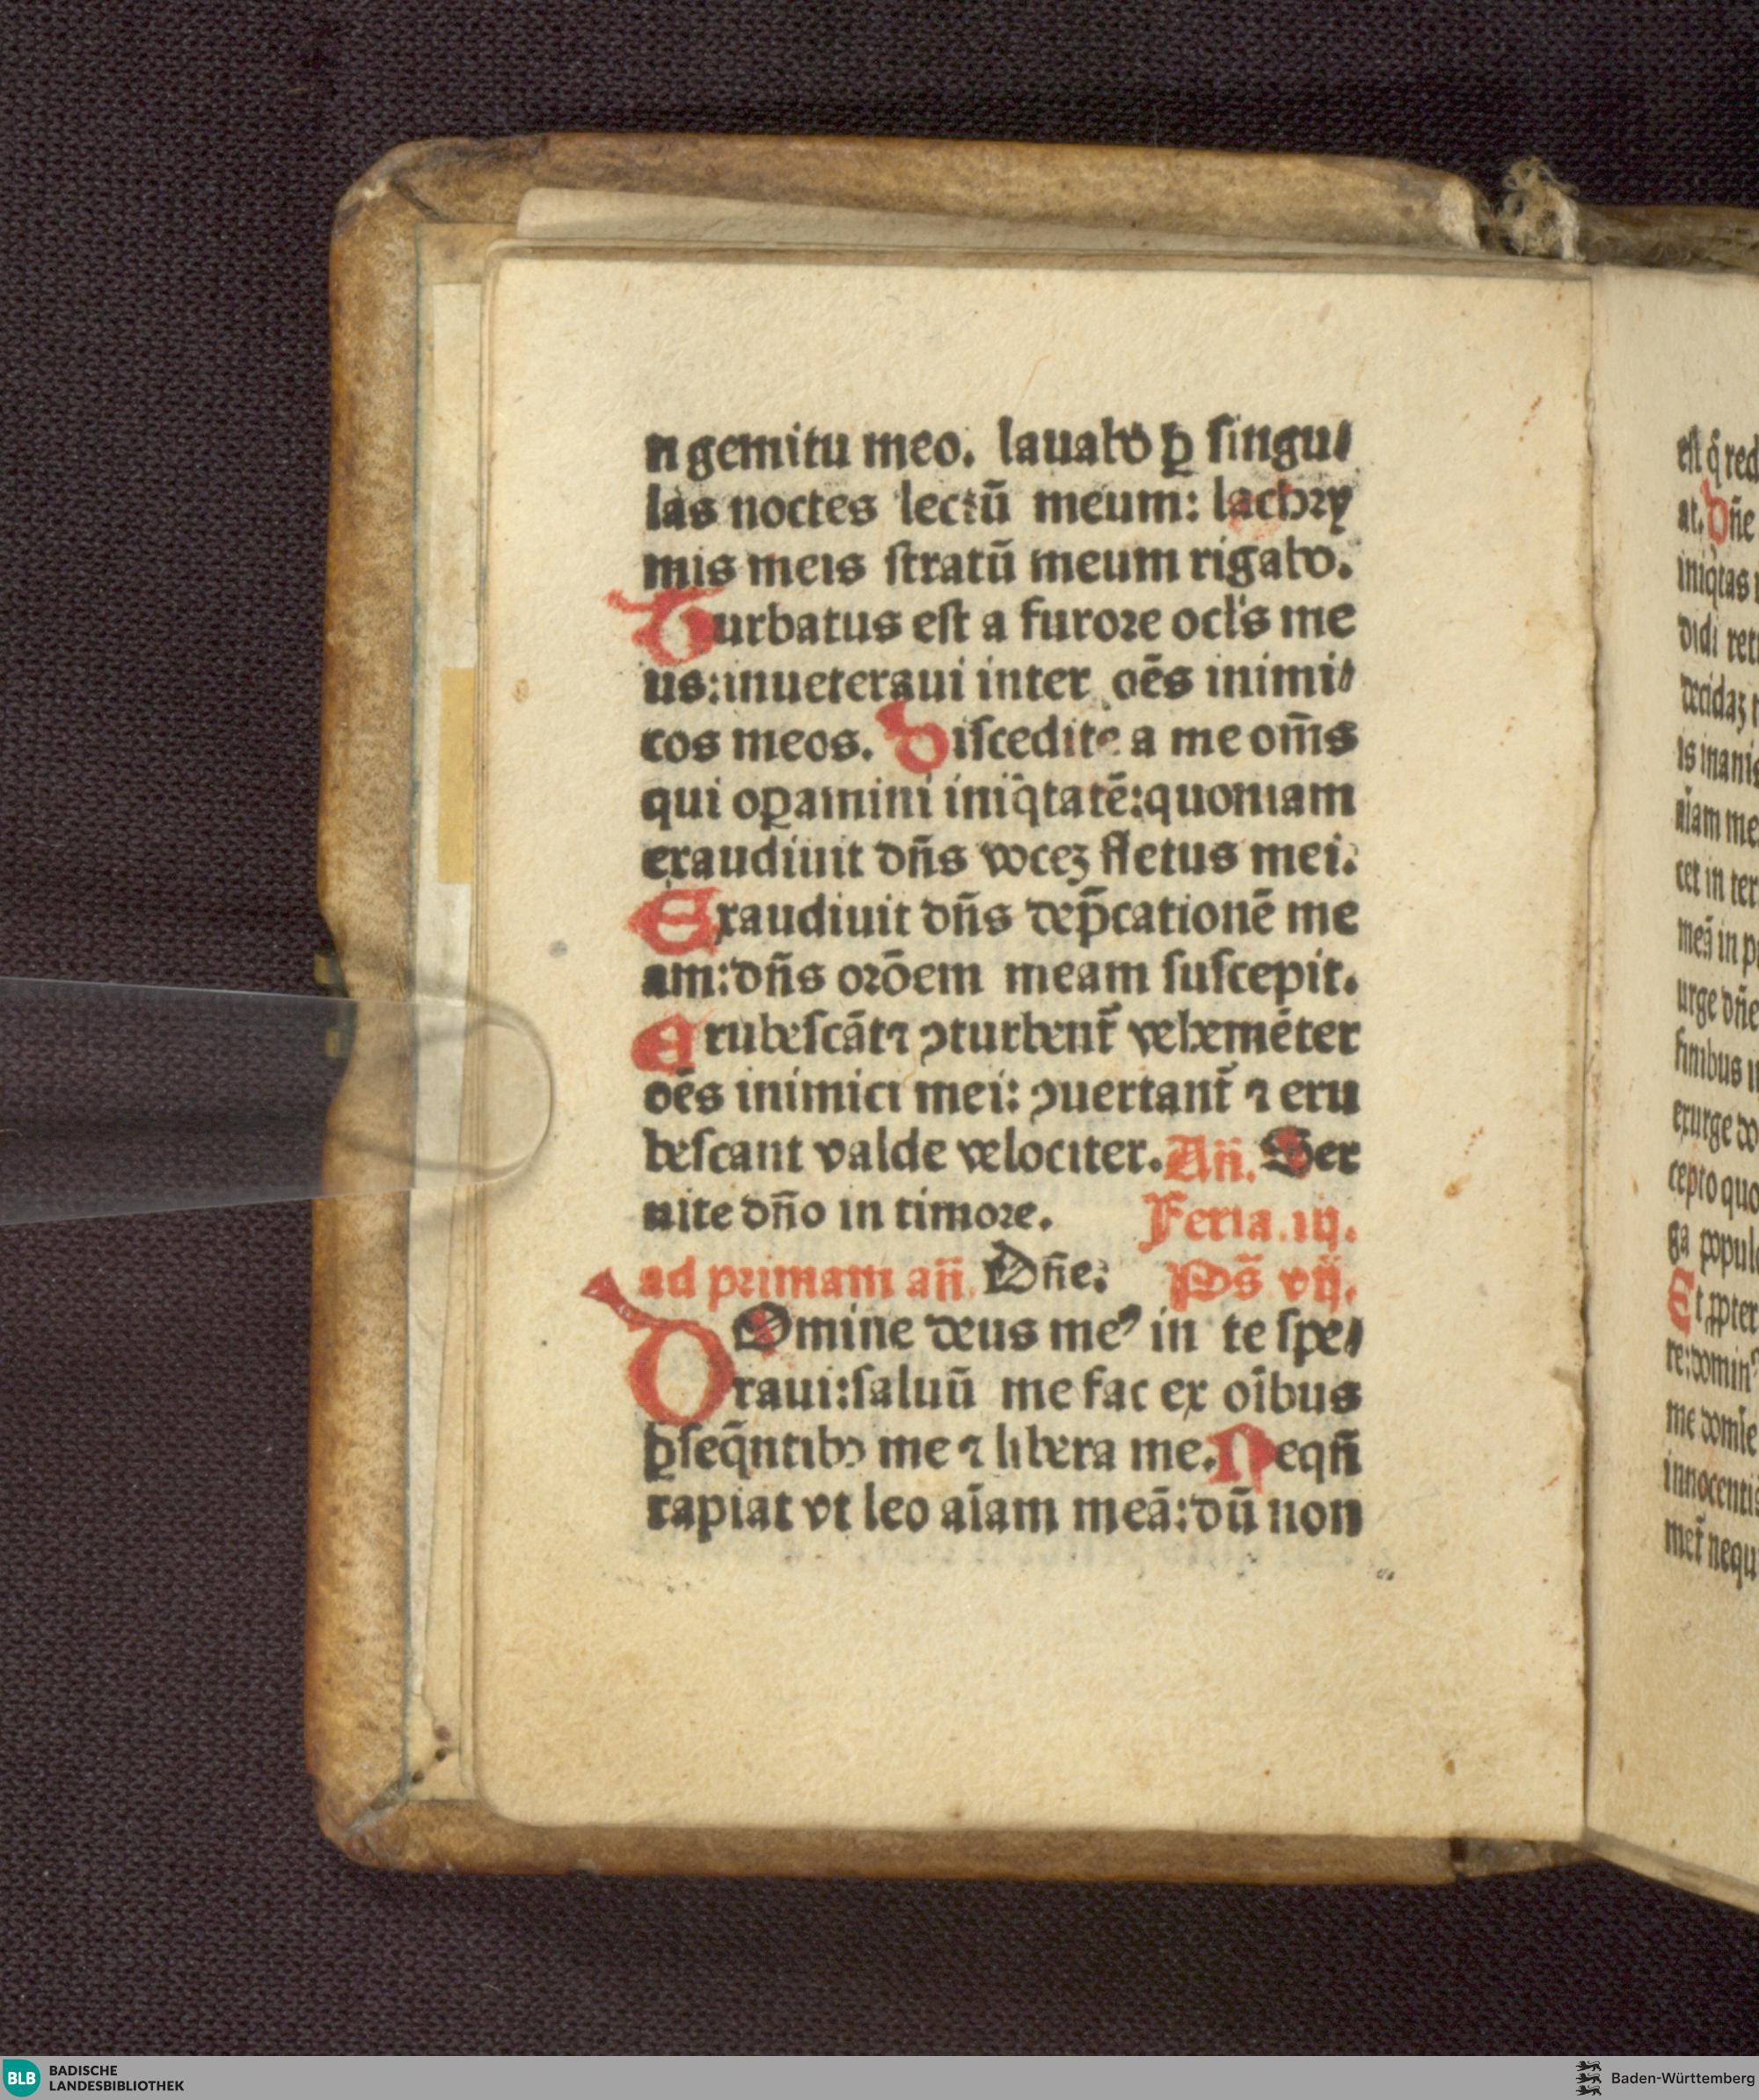 n gemitu meo. lauabo ꝑ singu⸗
las noctes lectū meum: lachry
mis meis stratū meum rigabo.
Turbatus est a furore ocl's me
us: inueteraui inter oēs inimi⸗
cos meos. Discedite a me om̄s
qui oꝑamini iniq̄tatē: quoniam
exaudiuit dn̄s vocez fletus mei.
Exaudiuit dn̄s dep̄cationē me
am: dn̄s orōem meam suscepit.
Erubescāt ⁊ ꝯturbent̄ vehemēter
oēs inimici mei: ꝯuertant̄ ⁊ eru
bescant valde velociter. An̄. Ser
uite dn̄o in timore. Feria .iij.
ad primam an̄. Dn̄e. Ps̄ vij.
DOmine deus meꝰ in te spe⸗
raui: saluū me fac ex oībus
ꝑseq̄ntibꝰ me ⁊ libera me. Neqn̄
rapiat vt leo aīam meā: dū non
est q̄ red
at. Dn̄e
iniq̄tas
didi ret
decidaz
is inanis
aīam me
cet in ter
meā in
urge dn̄e
finibus
exurge
cepto quo
ga popul
Et ꝓpter
re: dominꝰ
me domīe
innocentiā
met̄ nequ
BLB BADISCHE
LANDESBIBLIOTHEK
Baden-Württemberg